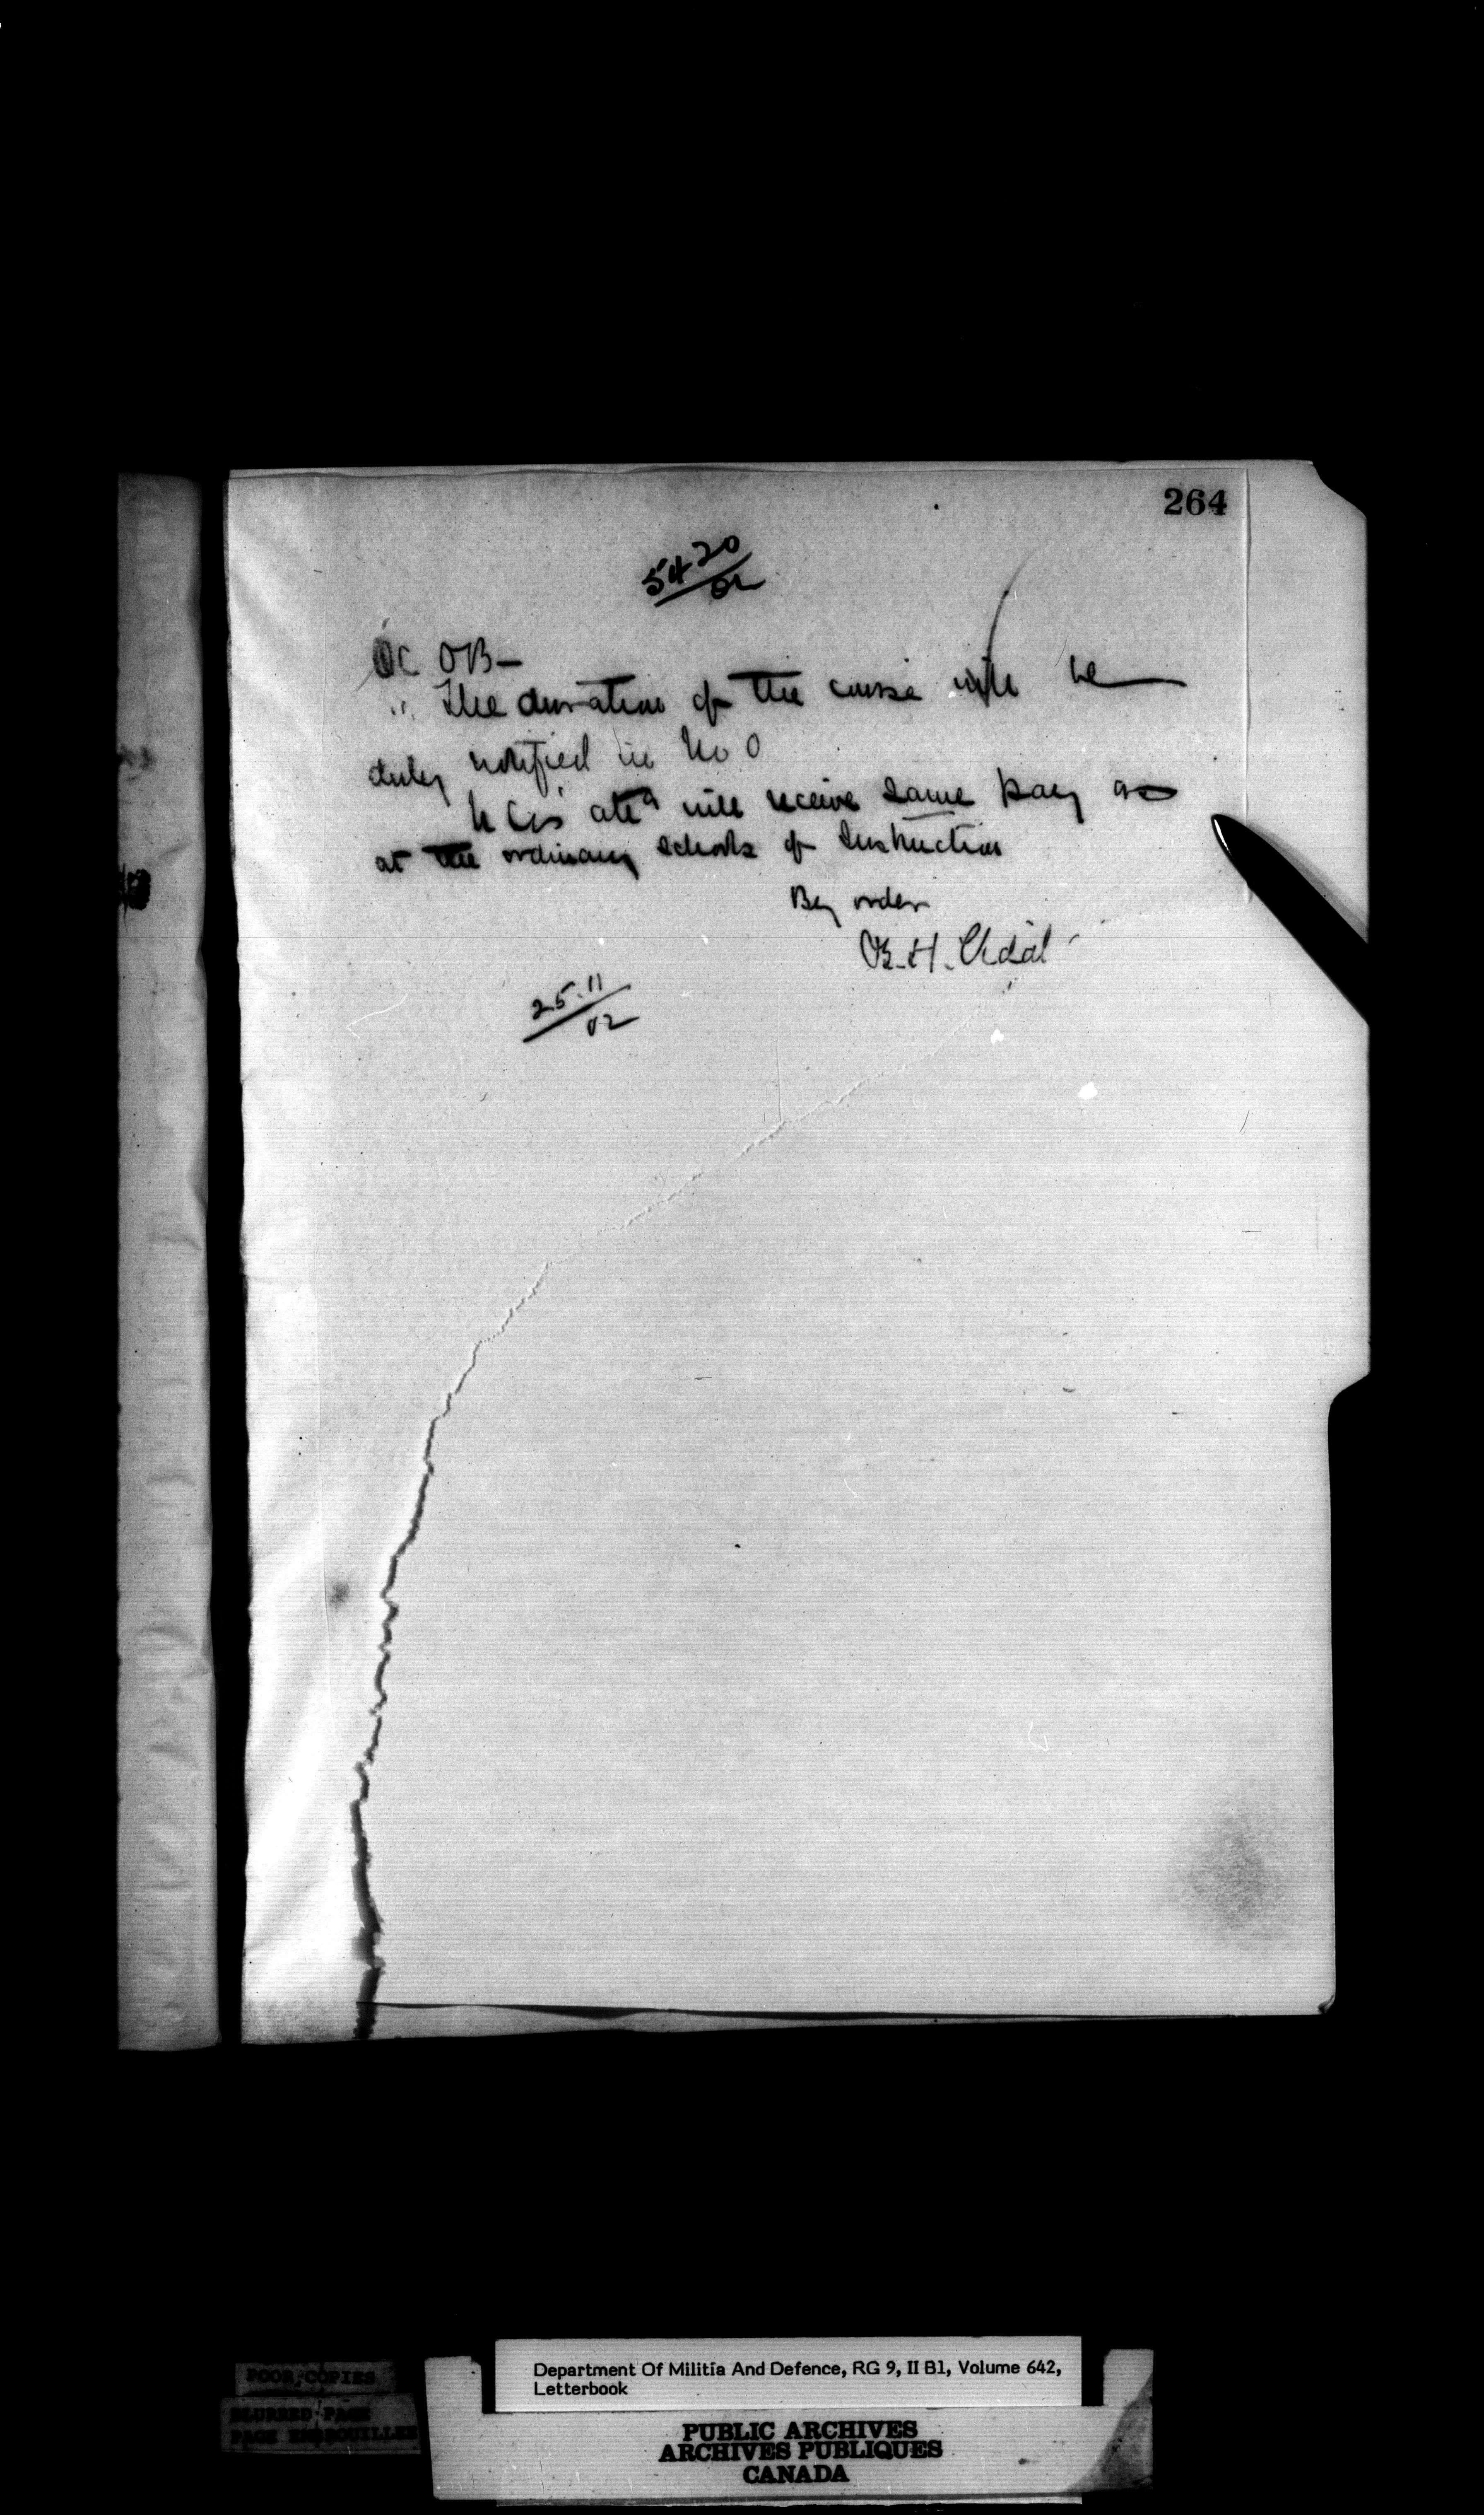 264
5420/02
OC OB—
The duration of the course will be
duly notified in M O
NCOs attd will receive same pay as
at the ordinary schools of Instruction
By order
B. H. Vidal
25.11/02
Department Of Militia And Defence, RG 9, II B1, Volume 642,
Letterbook
PUBLIC ARCHIVES
ARCHIVES PUBLIQUES
CANADA
POOR COPIES
BLURRED PAGE
PAGE EMBROUILLEE